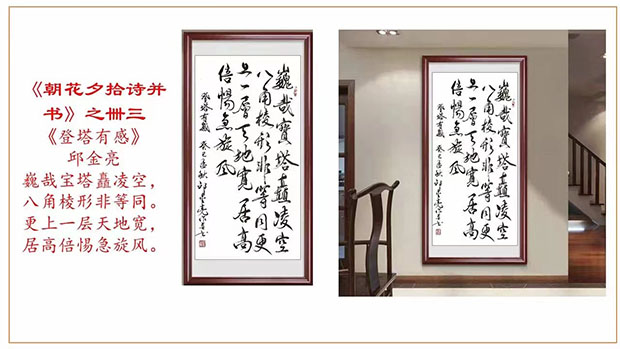 《朝花夕拾诗并
书》之卌三
《登塔有感》
邱金亮
巍哉宝塔矗凌空，
八角棱形非等同。
更上一层天地宽，
居高倍惕急旋风。
巍哉寶塔矗凌空
八角棱形非等同更
上一層天地寬居高
倍惕急旋风
登塔有感
巍哉寶塔矗凌空
八角棱形非等同更
上一層天地寬居高
倍惕急旋风
登塔有感